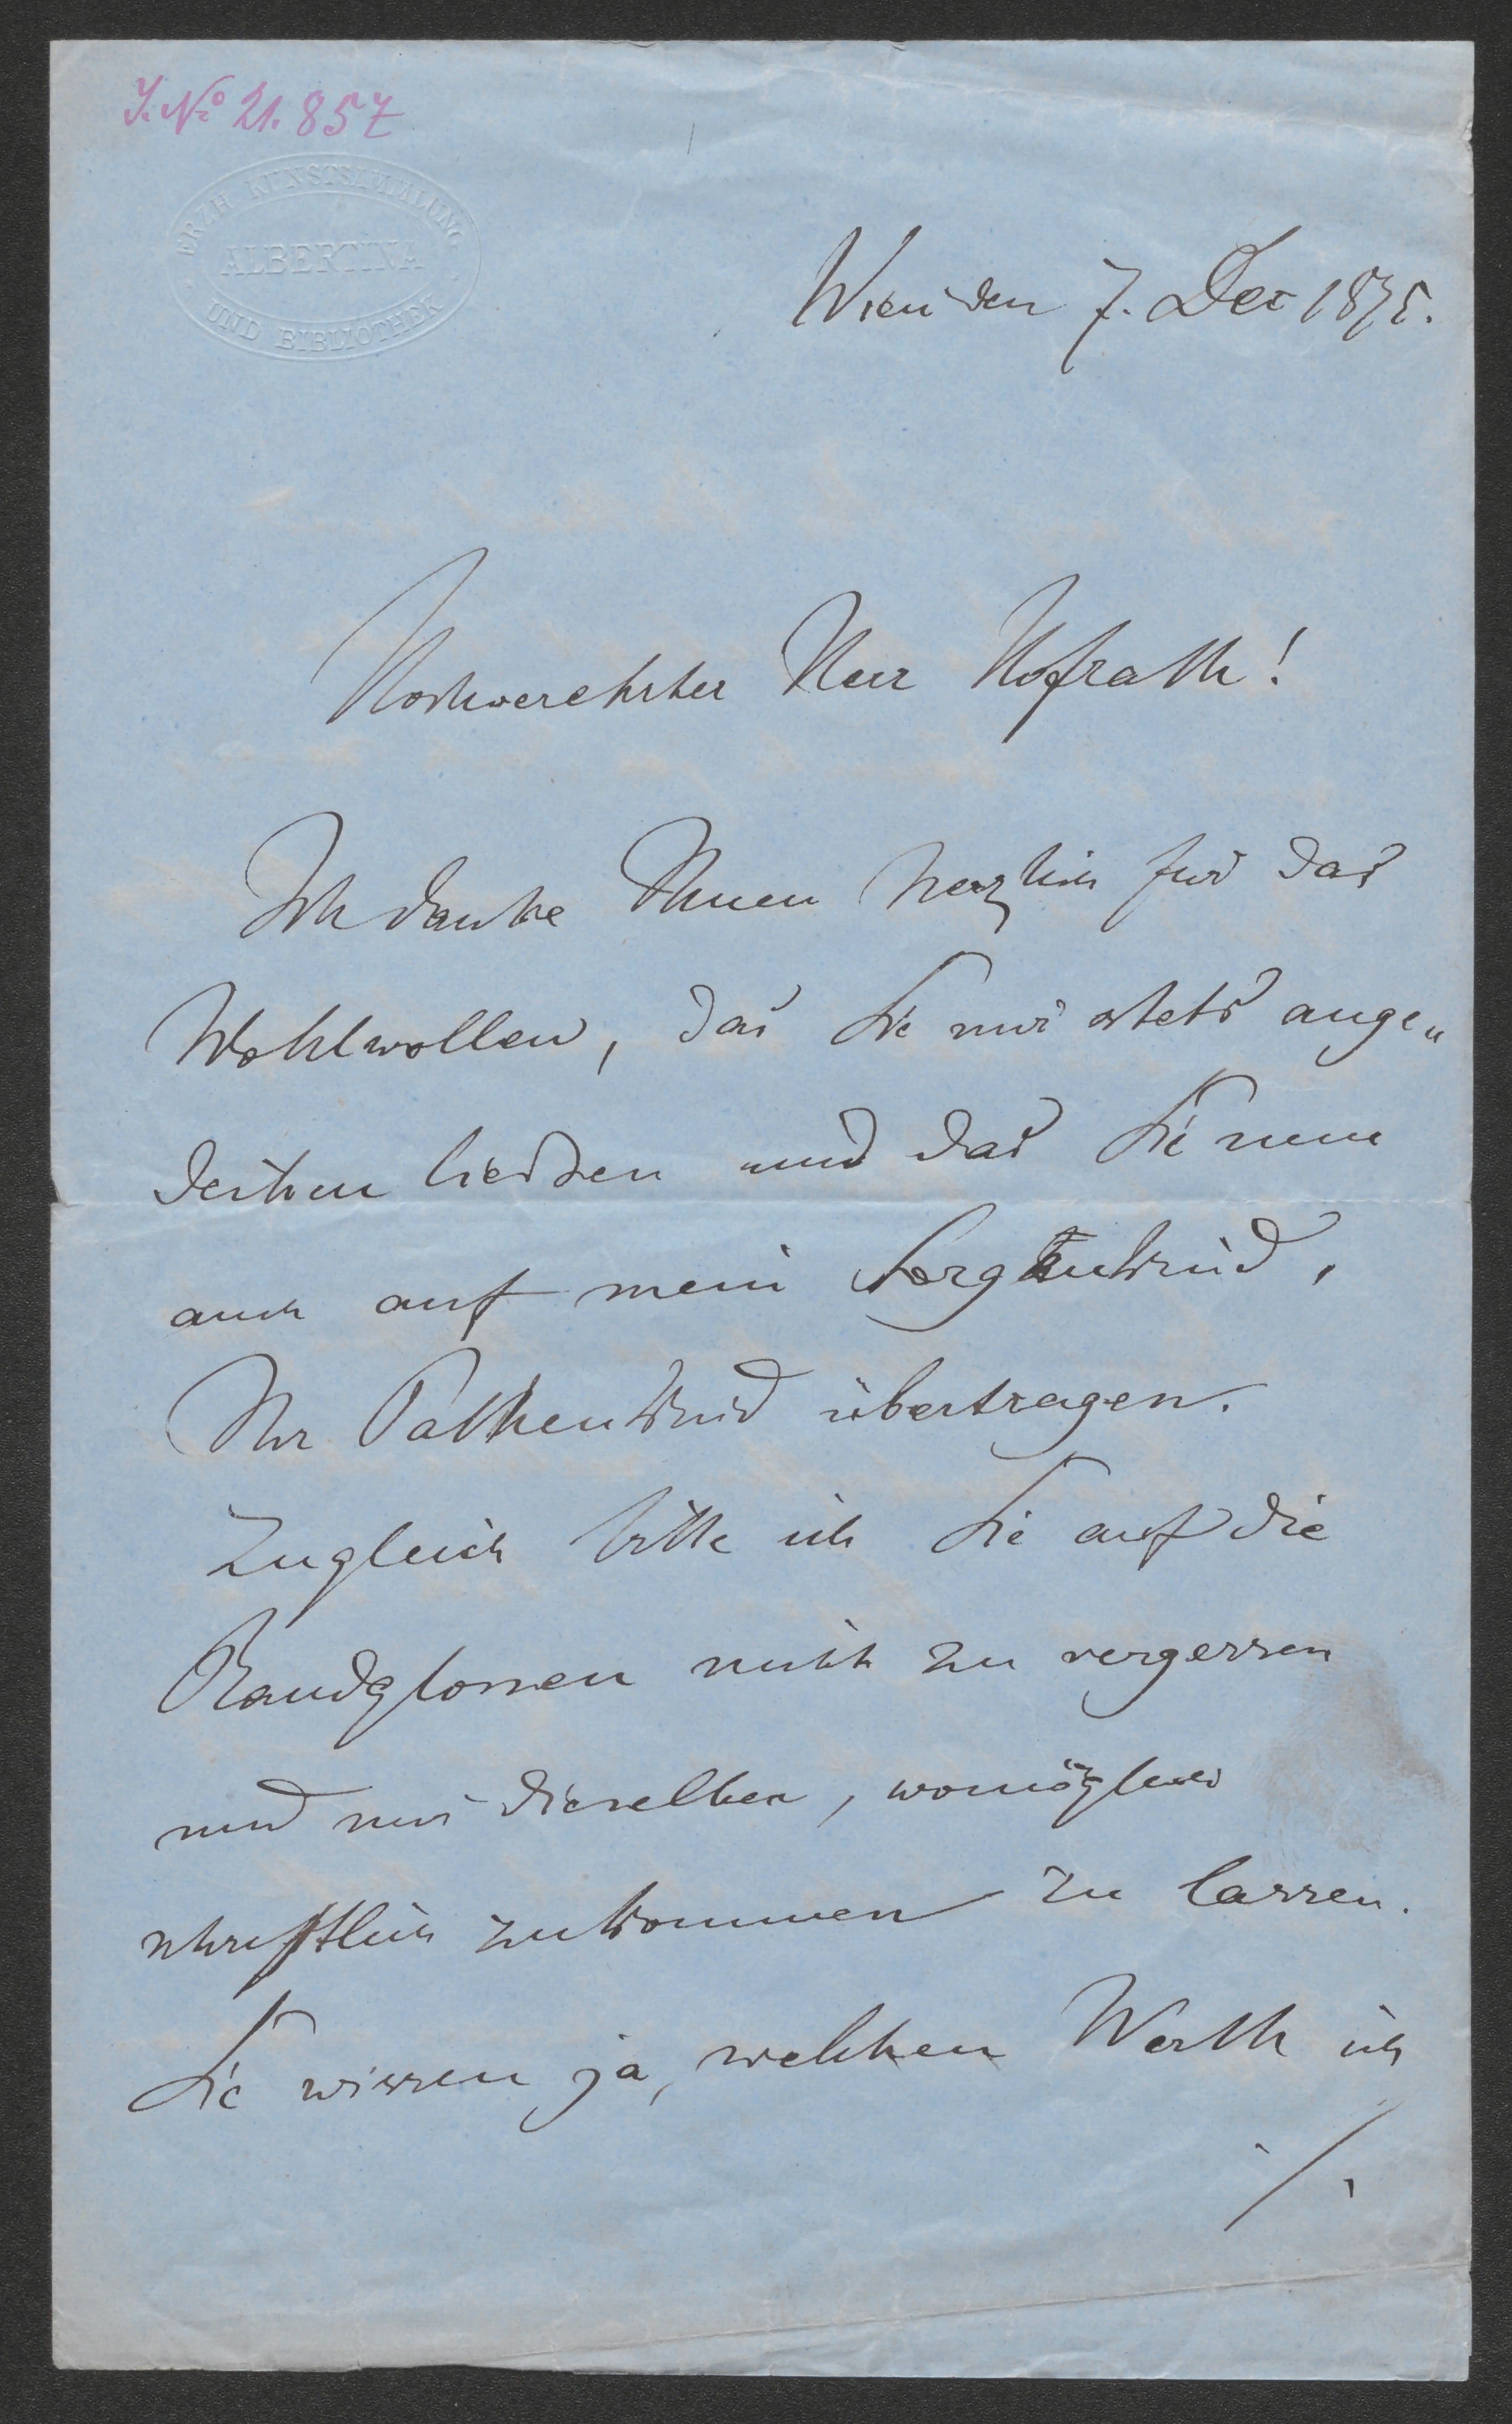 J. No 21.857
ERZH KUNSTSAMMLUNG
ALBERTINA
UND BIBLIOTHEK
Wien den 7. Dec 1875.
Hochverehrter Herr Hofrath!
Ich danke Ihnen herzlich für das
Wohlwollen, das Sie mir stets ange„
deihen liessen und das Sie nun
auch auf mein Sorgenkind,
Ihr Pathenkind übertragen.
Zugleich bitte ich Sie auf die
Randglossen nicht zu vergessen
und mir dieselben, womöglich
schriftlich zukommen zu lassen.
Sie wissen ja, welchen Werth ich
./.